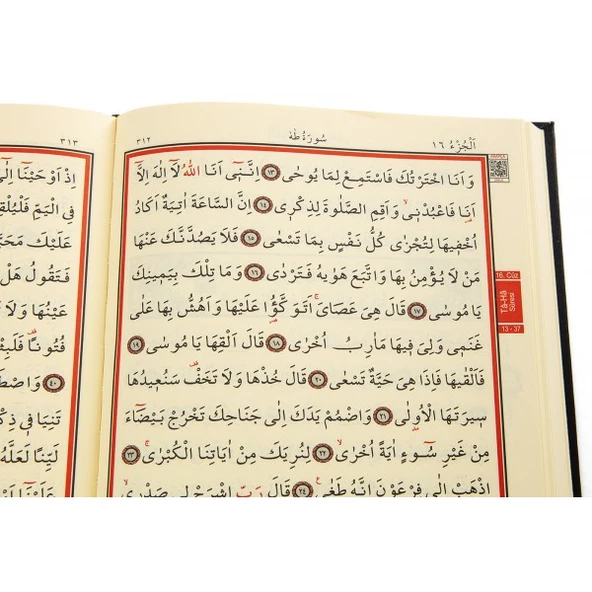 اَلْجُزْءُ ١٦ سُورَةُ طٰهٰ ٣١٢
وَاَنَا اخْتَرْتُكَ فَاسْتَمِعْ لِمَا يُوحٰى ﴿١٣﴾ اِنَّنٖٓى اَنَا اللّٰهُ لَٓا اِلٰهَ اِلَّٓا
اَنَا۬ فَاعْبُدْنٖىۙ وَاَقِمِ الصَّلٰوةَ لِذِكْرٖى ﴿١٤﴾ اِنَّ السَّاعَةَ اٰتِيَةٌ اَكَادُ
اُخْفٖيهَا لِتُجْزٰى كُلُّ نَفْسٍ بِمَا تَسْعٰى ﴿١٥﴾ فَلَا يَصُدَّنَّكَ عَنْهَا
مَنْ لَا يُؤْمِنُ بِهَا وَاتَّبَعَ هَوٰيهُ فَتَرْدٰى ﴿١٦﴾ وَمَا تِلْكَ بِيَمٖينِكَ
يَا مُوسٰى ﴿١٧﴾ قَالَ هِىَ عَصَاىَۚ اَتَوَكَّؤُ۬ا عَلَيْهَا وَاَهُشُّ بِهَا عَلٰى
غَنَمٖى وَلِىَ فٖيهَا مَاٰرِبُ اُخْرٰى ﴿١٨﴾ قَالَ اَلْقِهَا يَا مُوسٰى ﴿١٩﴾
فَاَلْقٰيهَا فَاِذَا هِىَ حَيَّةٌ تَسْعٰى ﴿٢٠﴾ قَالَ خُذْهَا وَلَا تَخَفْ۠ سَنُعٖيدُهَا
سٖيرَتَهَا الْاُو۫لٰى ﴿٢١﴾ وَاضْمُمْ يَدَكَ اِلٰى جَنَاحِكَ تَخْرُجْ بَيْضَٓاءَ
مِنْ غَيْرِ سُٓوءٍ اٰيَةً اُخْرٰىۙ ﴿٢٢﴾ لِنُرِيَكَ مِنْ اٰيَاتِنَا الْكُبْرٰىۚ ﴿٢٣﴾
اِذْهَبْ اِلٰى فِرْعَوْنَ اِنَّهُ طَغٰى۟ ﴿٢٤﴾ قَالَ رَبِّ اشْرَحْ لٖى صَدْرٖىۙ
16. Cüz
Tâ-Hâ Sûresi
13 - 37
٣١٣
اِذْ اَوْحَيْنَٓا اِلٰٓى
فِى الْيَمِّ فَلْيُلْقِ
عَلَيْكَ مَحَبَّ
فَتَقُولُ هَلْ
عَيْنُهَا وَلَا
فُتُونًا۠ فَلَبِثْ
﴿٤٠﴾ وَاصْطَ
تَنِيَا فٖى ذِكْ
لَيِّنًا لَعَلَّهُ
عَلَيْنَٓا